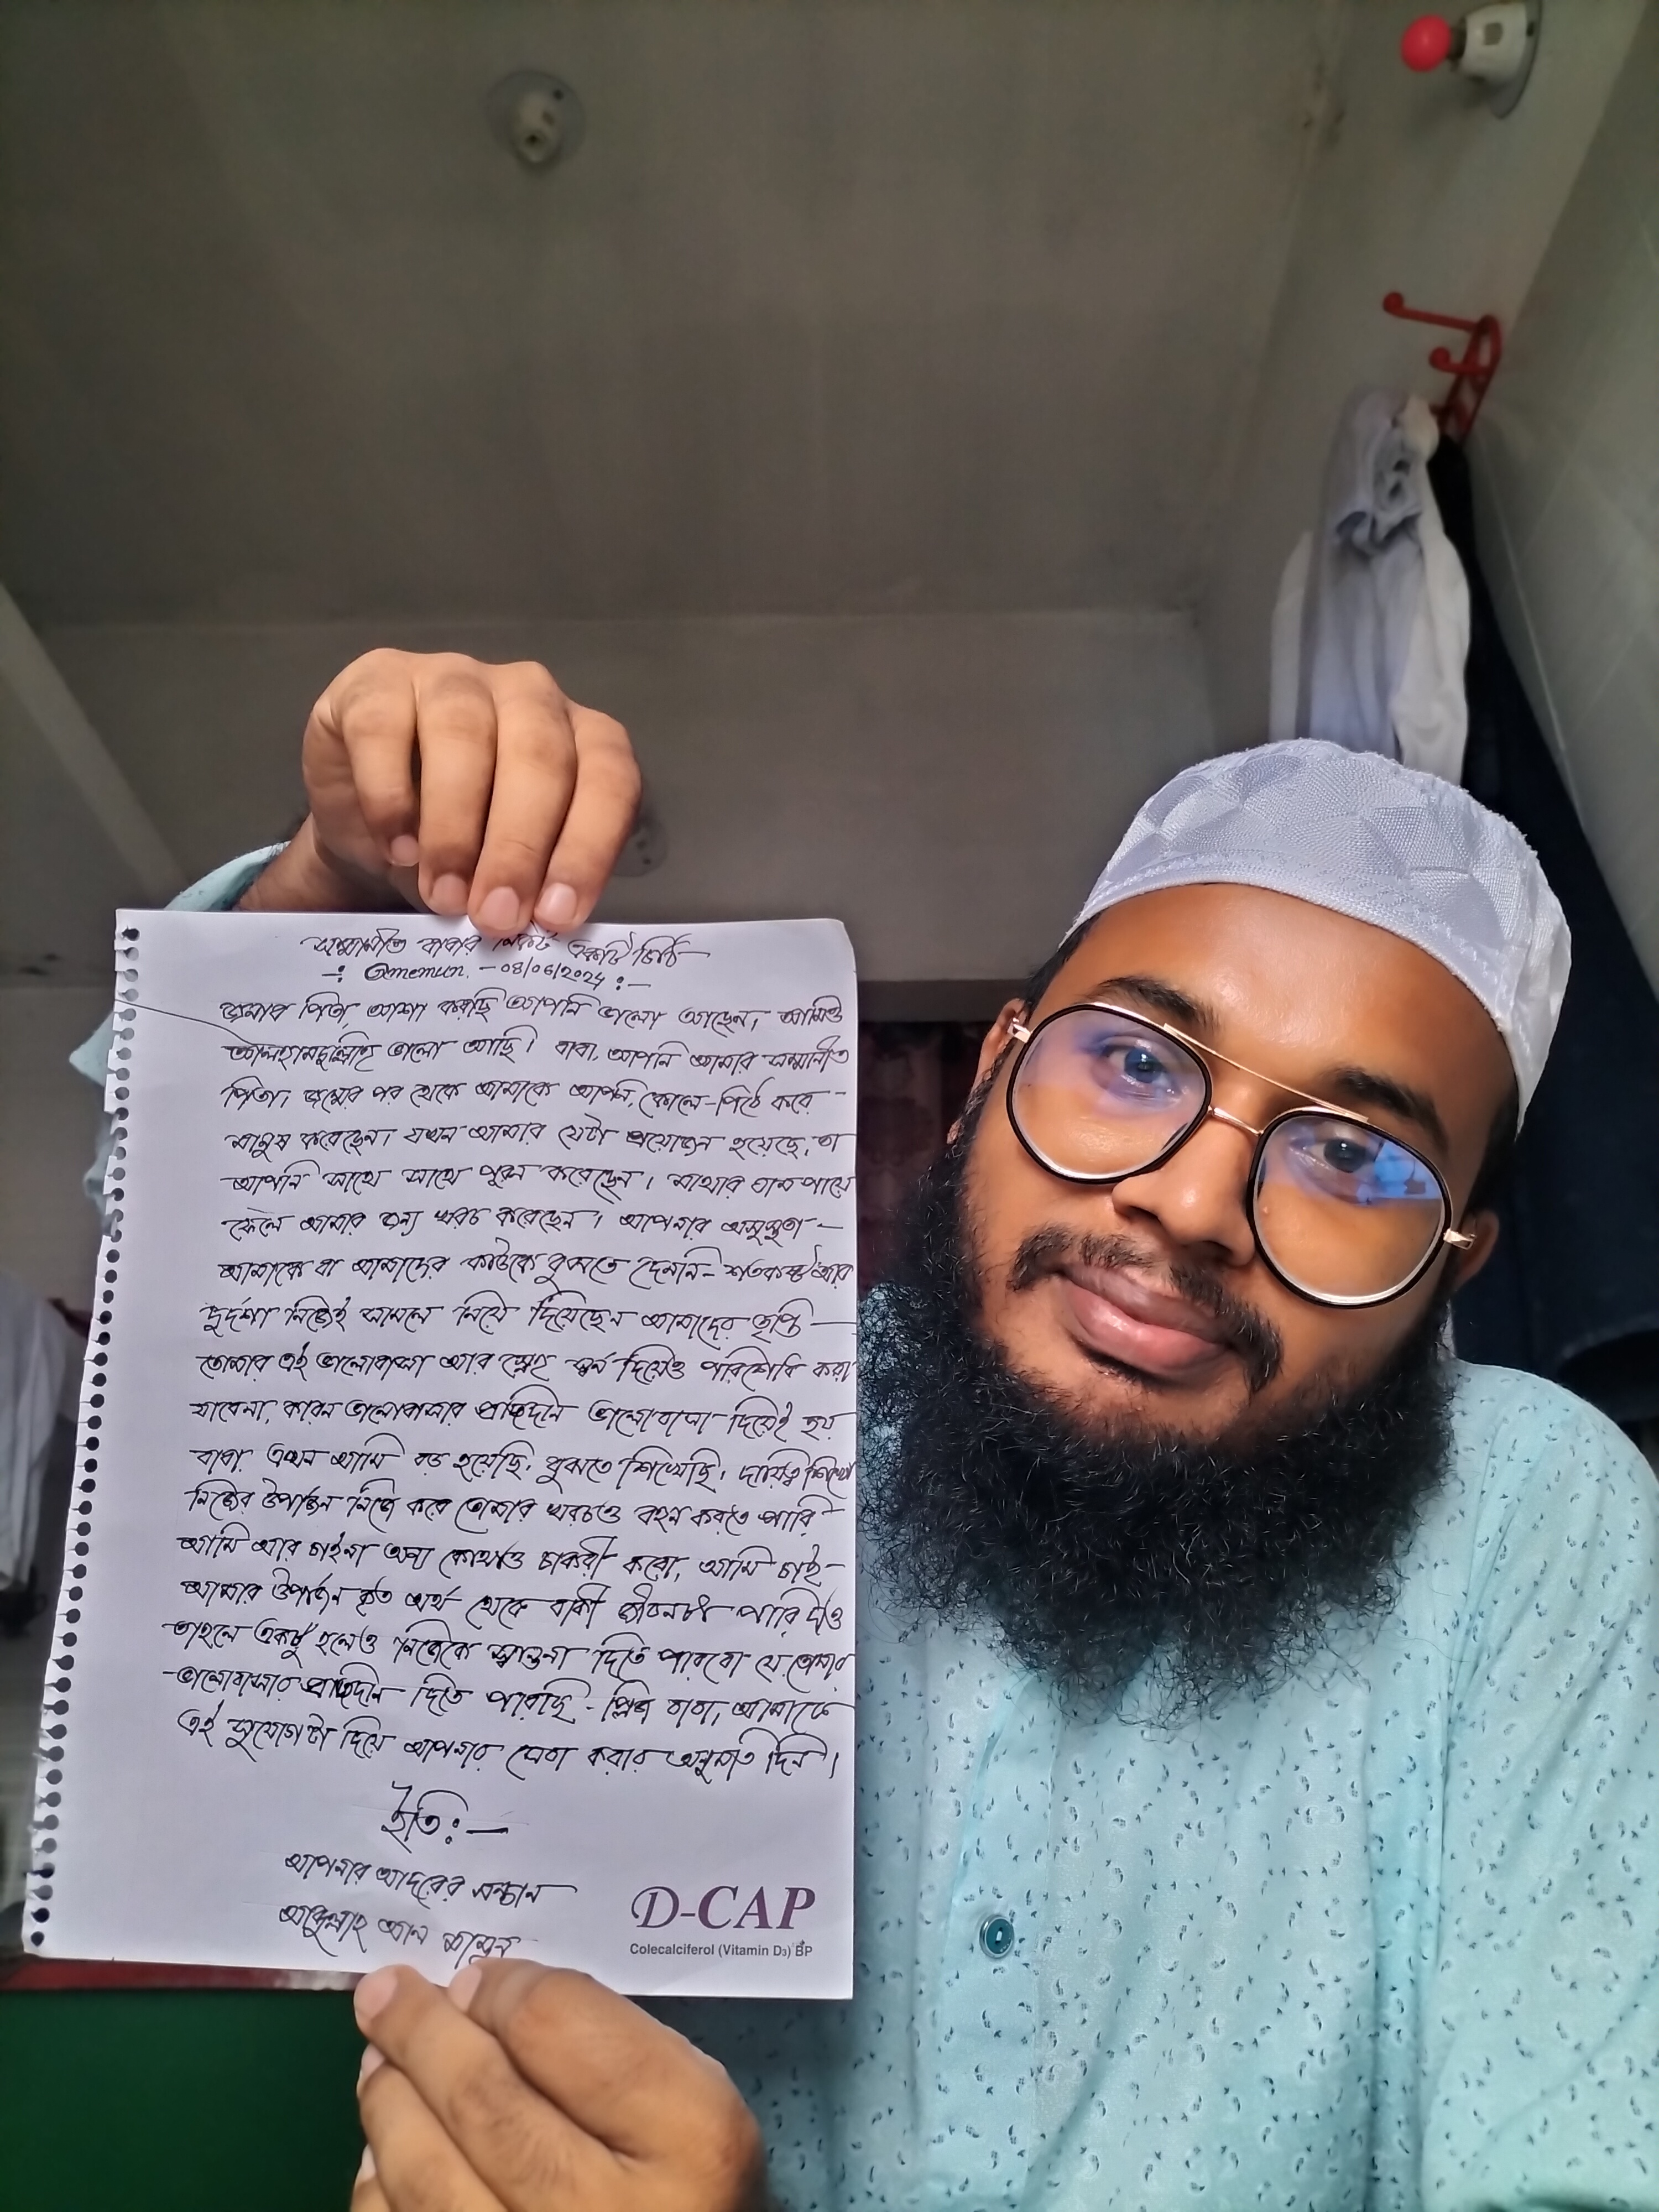 সম্মানীত বাবার নিকট একটি চিঠি
-: @memun. - 08/06/2024 :-
জনাব পিতা, আশা করছি আপনি ভালো আছেন, আমিও
আলহামদুলিল্লাহ ভালো আছি। বাবা, আপনি আমার সম্মানীত
পিতা, জন্মের পর থেকে আমাকে আপনি, কোলে-পিঠে করে
মানুষ করেছেন। যখন আমার যেটা প্রয়োজন হয়েছে, তা
আপনি সাথে সাথে পূরন করেছেন। মাথার ঘাম পায়ে
ফেলে আমার জন্য খরচ করেছেন। আপনার অসুস্থতা -
আমাকে বা আমাদের কাউকে বুঝতে দেননি - শতকষ্ট আর
দুর্দশা নিজেই সামলে নিয়ে দিয়েছেন আমাদের তৃপ্তি
তোমার এই ভালোবাসা আর স্নেহ স্বর্ন দিয়েও পরিশোধ করা
যাবেনা, কারন ভালোবাসার প্রতিদান ভালোবাসা দিয়েই হয়
বাবা এখন আমি বড় হয়েছি, বুঝতে শিখেছি, দায়িত্ব শিখে
নিজের উপার্জন নিজে করে তোমার খরচও বহন করতে পারি
আমি আর চাইনা অন্য কোথাও চাকরী করো, আমি চাই -
আমার উপার্জন কৃত অর্থ থেকে বাকী জীবনটা পারি দাও
তাহলে একটু হলেও নিজেকে স্বান্তনা দিতে পারবো যে তোমার
ভালোবাসার প্রতিদান দিতে পারছি - প্লিজ বাবা, আমাকে
এই সুযোগটা দিয়ে আপনার সেবা করার অনুমতি দিন।
ইতি:-
আপনার আদরের সন্তান
আব্দুল্লাহ আল মামুন
D-CAP
Colecalciferol (Vitamin D₃) BP